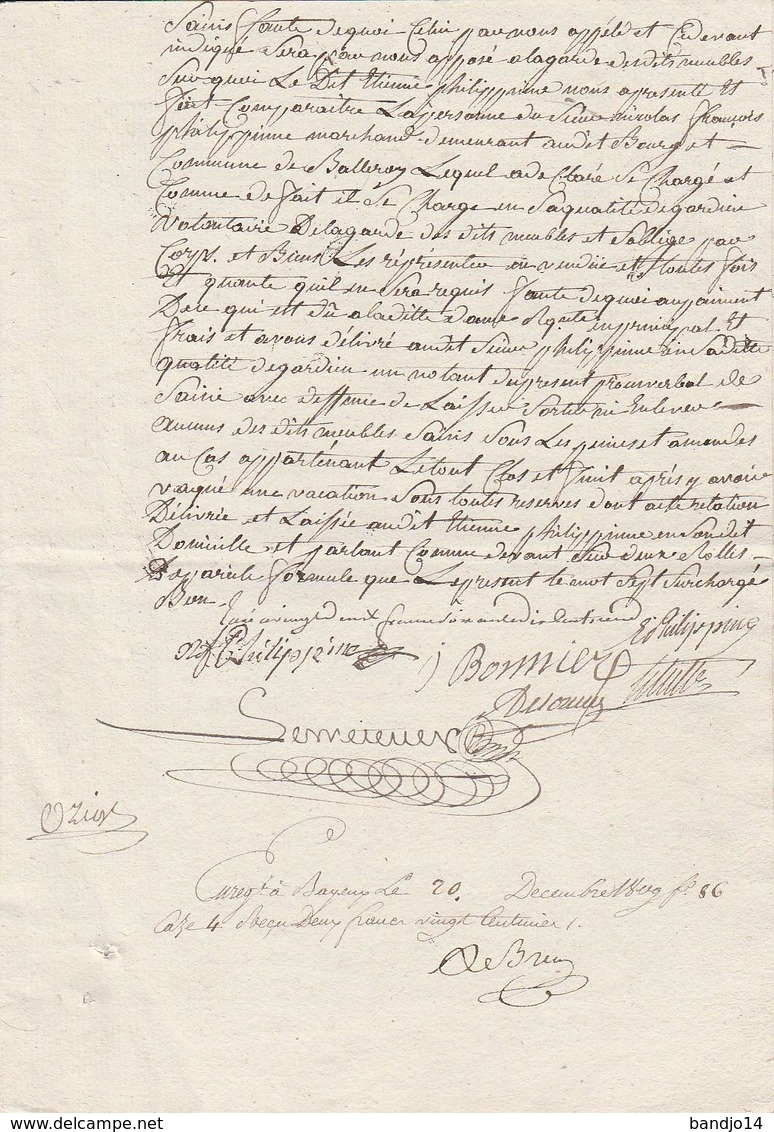 Saisis faute de quoi Celui par nous appélé et Cidevant
indiqué Sera par nous apposé alagarde desdits meubles
Sur quoi Le Dit Etienne philippinne nous apresenté Et
fait Comparaitre Lapersonne du Sieur nicolas françois
philippinne marchand demeurant audit Bourg et
Commune de Balleroy Lequel adeClaré Se Chargé et
Comme de fait il Se Charge en Saqualité degardien
Volontaire Delagarde des dits meubles et Soblige par
Corps et Biens Les réprésenter en vendüe et toutes fois
Et quante quil en Sera requis faute dequoi aupaiment
De ce qui est dû aladitte dame en principal Et
frais et avons délivré audit Sieur philippinne en Saditte
qualité degardien un notant duprésent procesverbal de
Saisie avec deffense de Laisser Sortir ni Enlever
aucuns des dits meubles Saisis Sous Les peines et amendes
au Cas appartenant Le tout Clos et finit après y avoir
vaqué une vacation Sous toutes reserves dont acte
Délivrée et Laissée audit Etienne philippinne en Son dit
Domicille et parlant Comme devant Sur deux Rolles
De pareille formule que Le present le mot Sept Surchargé
Bon
E Philippine
Philippine
J Bonnier
Lemeteuex
Enregt. à Bayeux Le 20. Decembre 1809 fo. 86
Case 4 Reçu Deux francs vingt Centimes
bandjo14